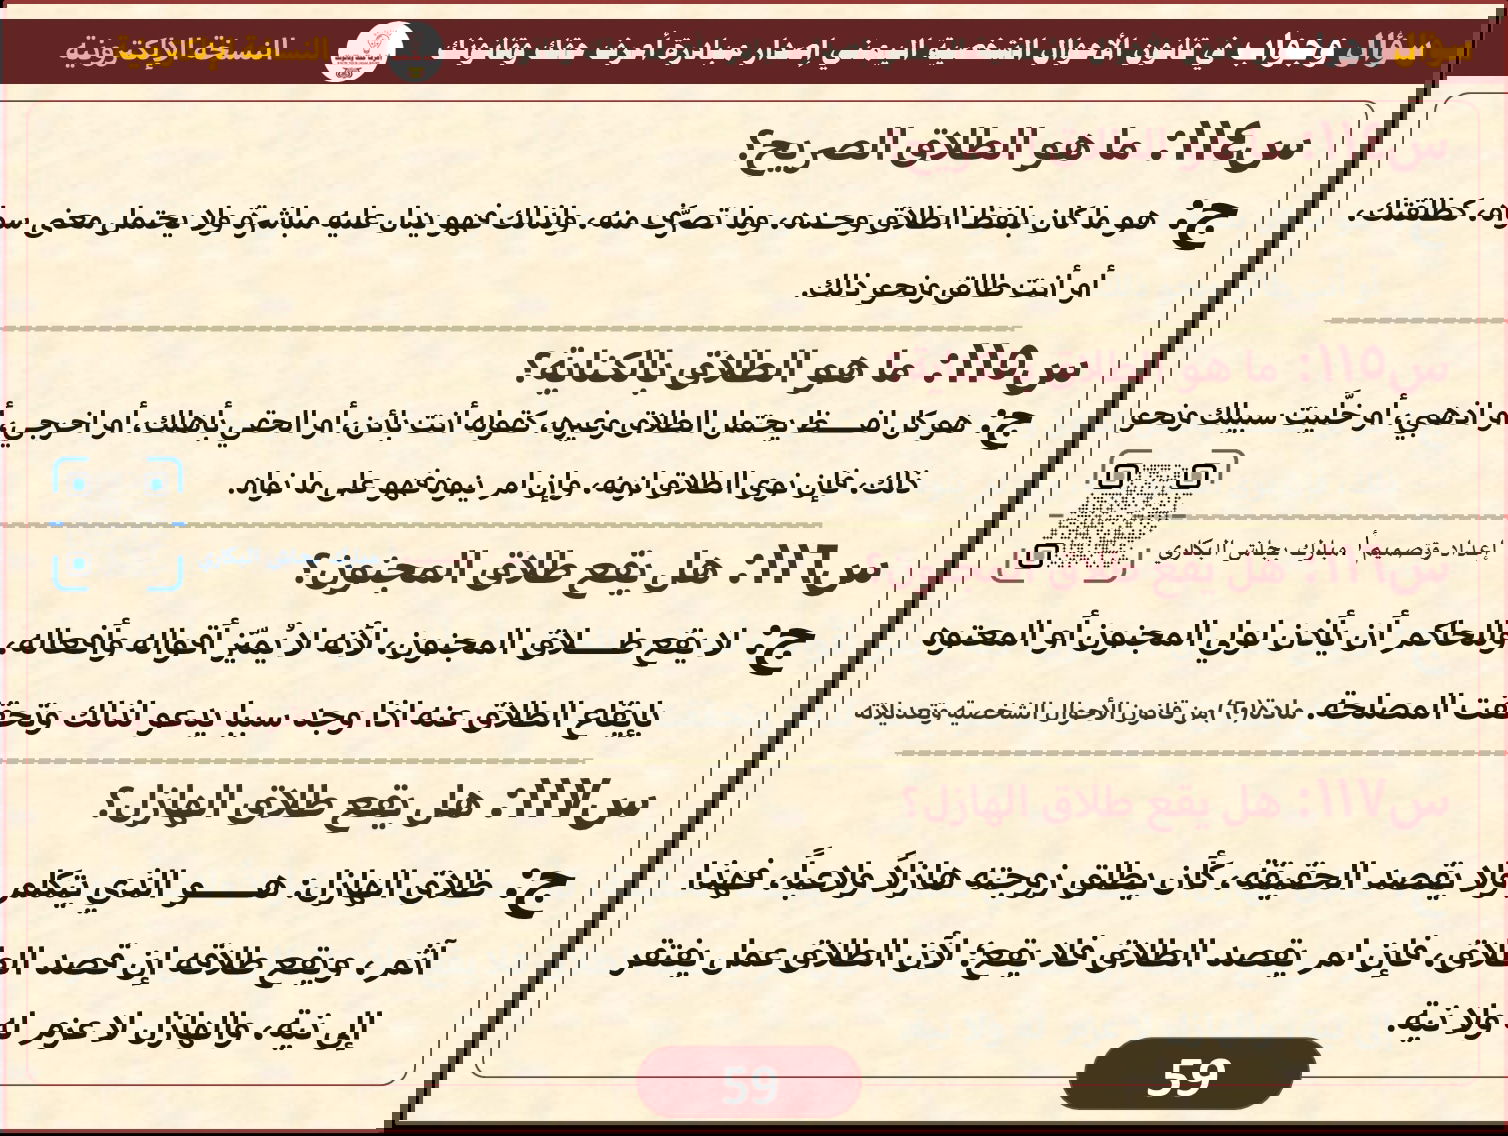 سؤال وجواب في قانون الأحوال الشخصية اليمني إصدار مبادرة أعرف حقك وقانونك النسخة الإلكترونية
س١١٤: ما هو الطلاق الصريح؟
ج: هو ما كان بلفظ الطلاق وحده، وما تصرَّف منه، ولذلك فهو يدل عليه مباشرةً ولا يحتمل معنى سواه، كطلقتك،
أو أنت طالق ونحو ذلك.
س١١٥: ما هو الطلاق بالكناية؟
ج: هو كل لفـــظ يحتمل الطلاق وغيره، كقوله أنت بائن، أو الحقي بأهلك، أو اخرجي، أو اذهبي، أو خلَّيت سبيلك ونحو
ذلك، فإن نوى الطلاق لزمه، وإن لم ينوه فهو على ما نواه.
إعداد وتصميم أ/
س١١٦: هل يقع طلاق المجنون؟
ج: لا يقع طـــلاق المجنون، لأنه لا يُميّز أقواله وأفعاله، وللحاكم أن يأذن لولي المجنون أو المعتوه
بإيقاع الطلاق عنه اذا وجد سببا يدعو لذلك وتحققت المصلحة. من قانون الأحوال الشخصية وتعديلاته
س١١٧: هل يقع طلاق الهازل؟
ج: طلاق الهازل: هــــو الذي يتكلم ولا يقصد الحقيقة، كأن يطلق زوجته هازلاً ولاعباً، فهذا
آثم، ويقع طلاقه إن قصد الطلاق، فإن لم يقصد الطلاق فلا يقع؛ لأن الطلاق عمل يفتقر
إلى نية، والهازل لا عزم له ولا نية.
59